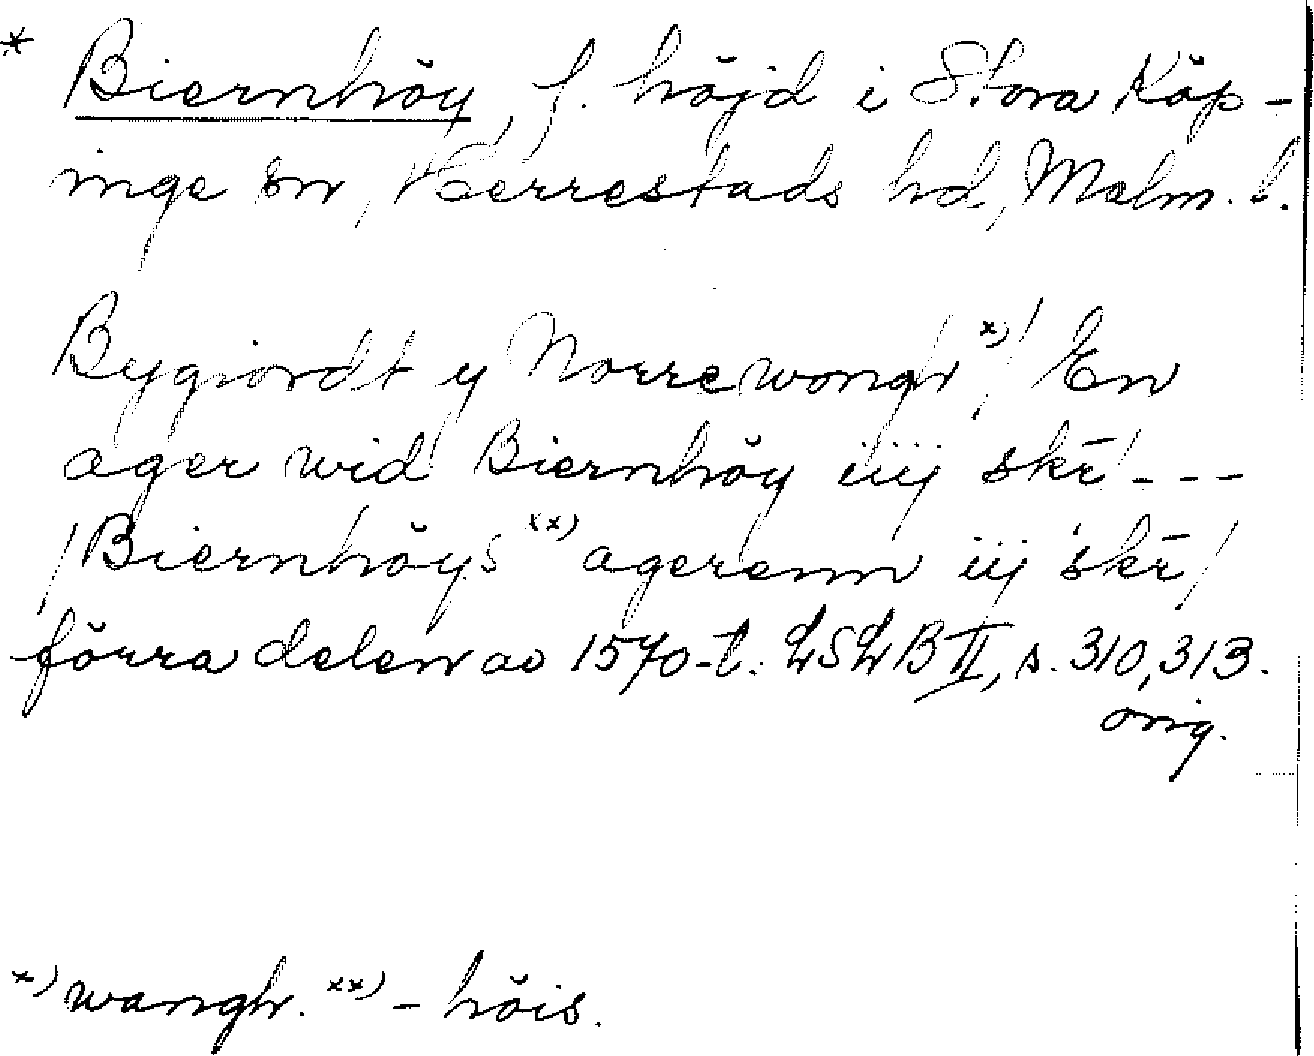 * Biernhöy, f. höjd i Stora Köp-
inge sn, Herrestads hd, Malm. l.
Bygiordt y Norrewongh x) / En
ager wid Biernhöy iiij skē / - - -
/ Biernhöys xx) agerenn iij skē /
förra delen av 1570-t. LSLB II, s. 310, 313.
orig.
x) wangh. xx) - höis.